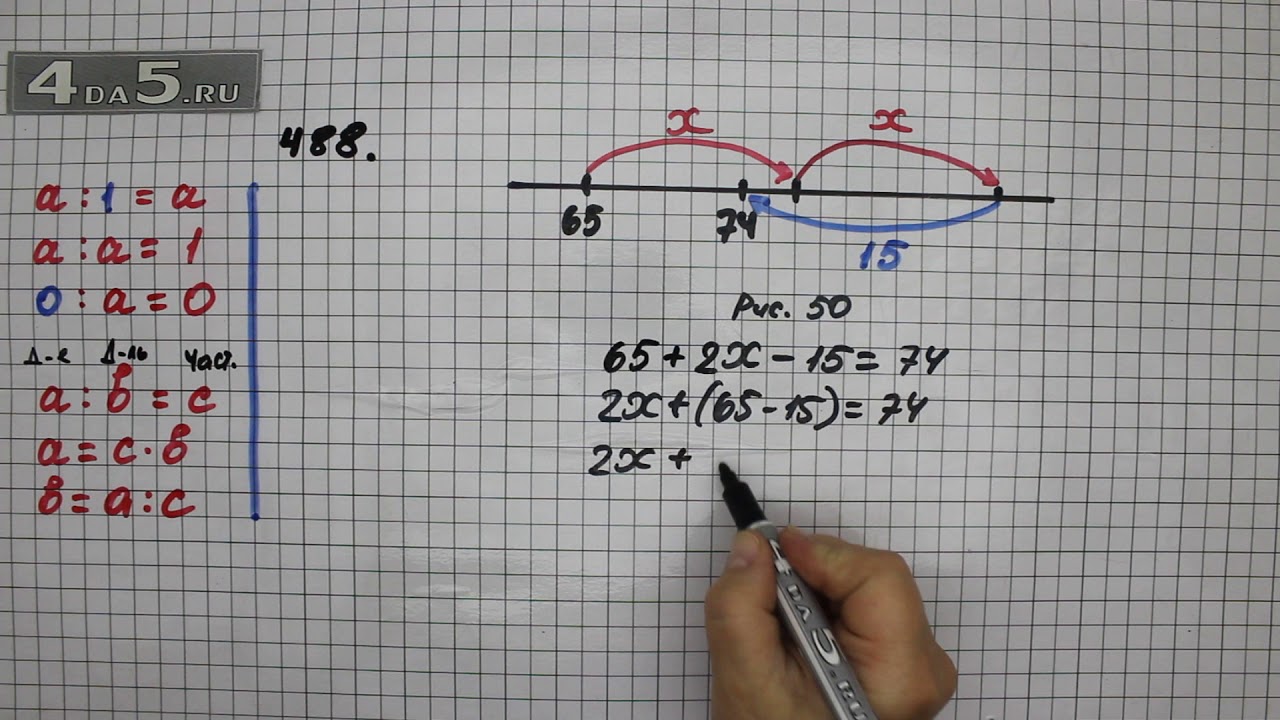 4DA5.RU
488.
a : 1 = a
a : a = 1
0 : a = 0
Д-е Д-ль Част.
a : в = c
a = c · в
в = a : c
x x
65 74 15
Рис. 50
65 + 2x - 15 = 74
2x + (65 - 15) = 74
2x +
4DA5.RU